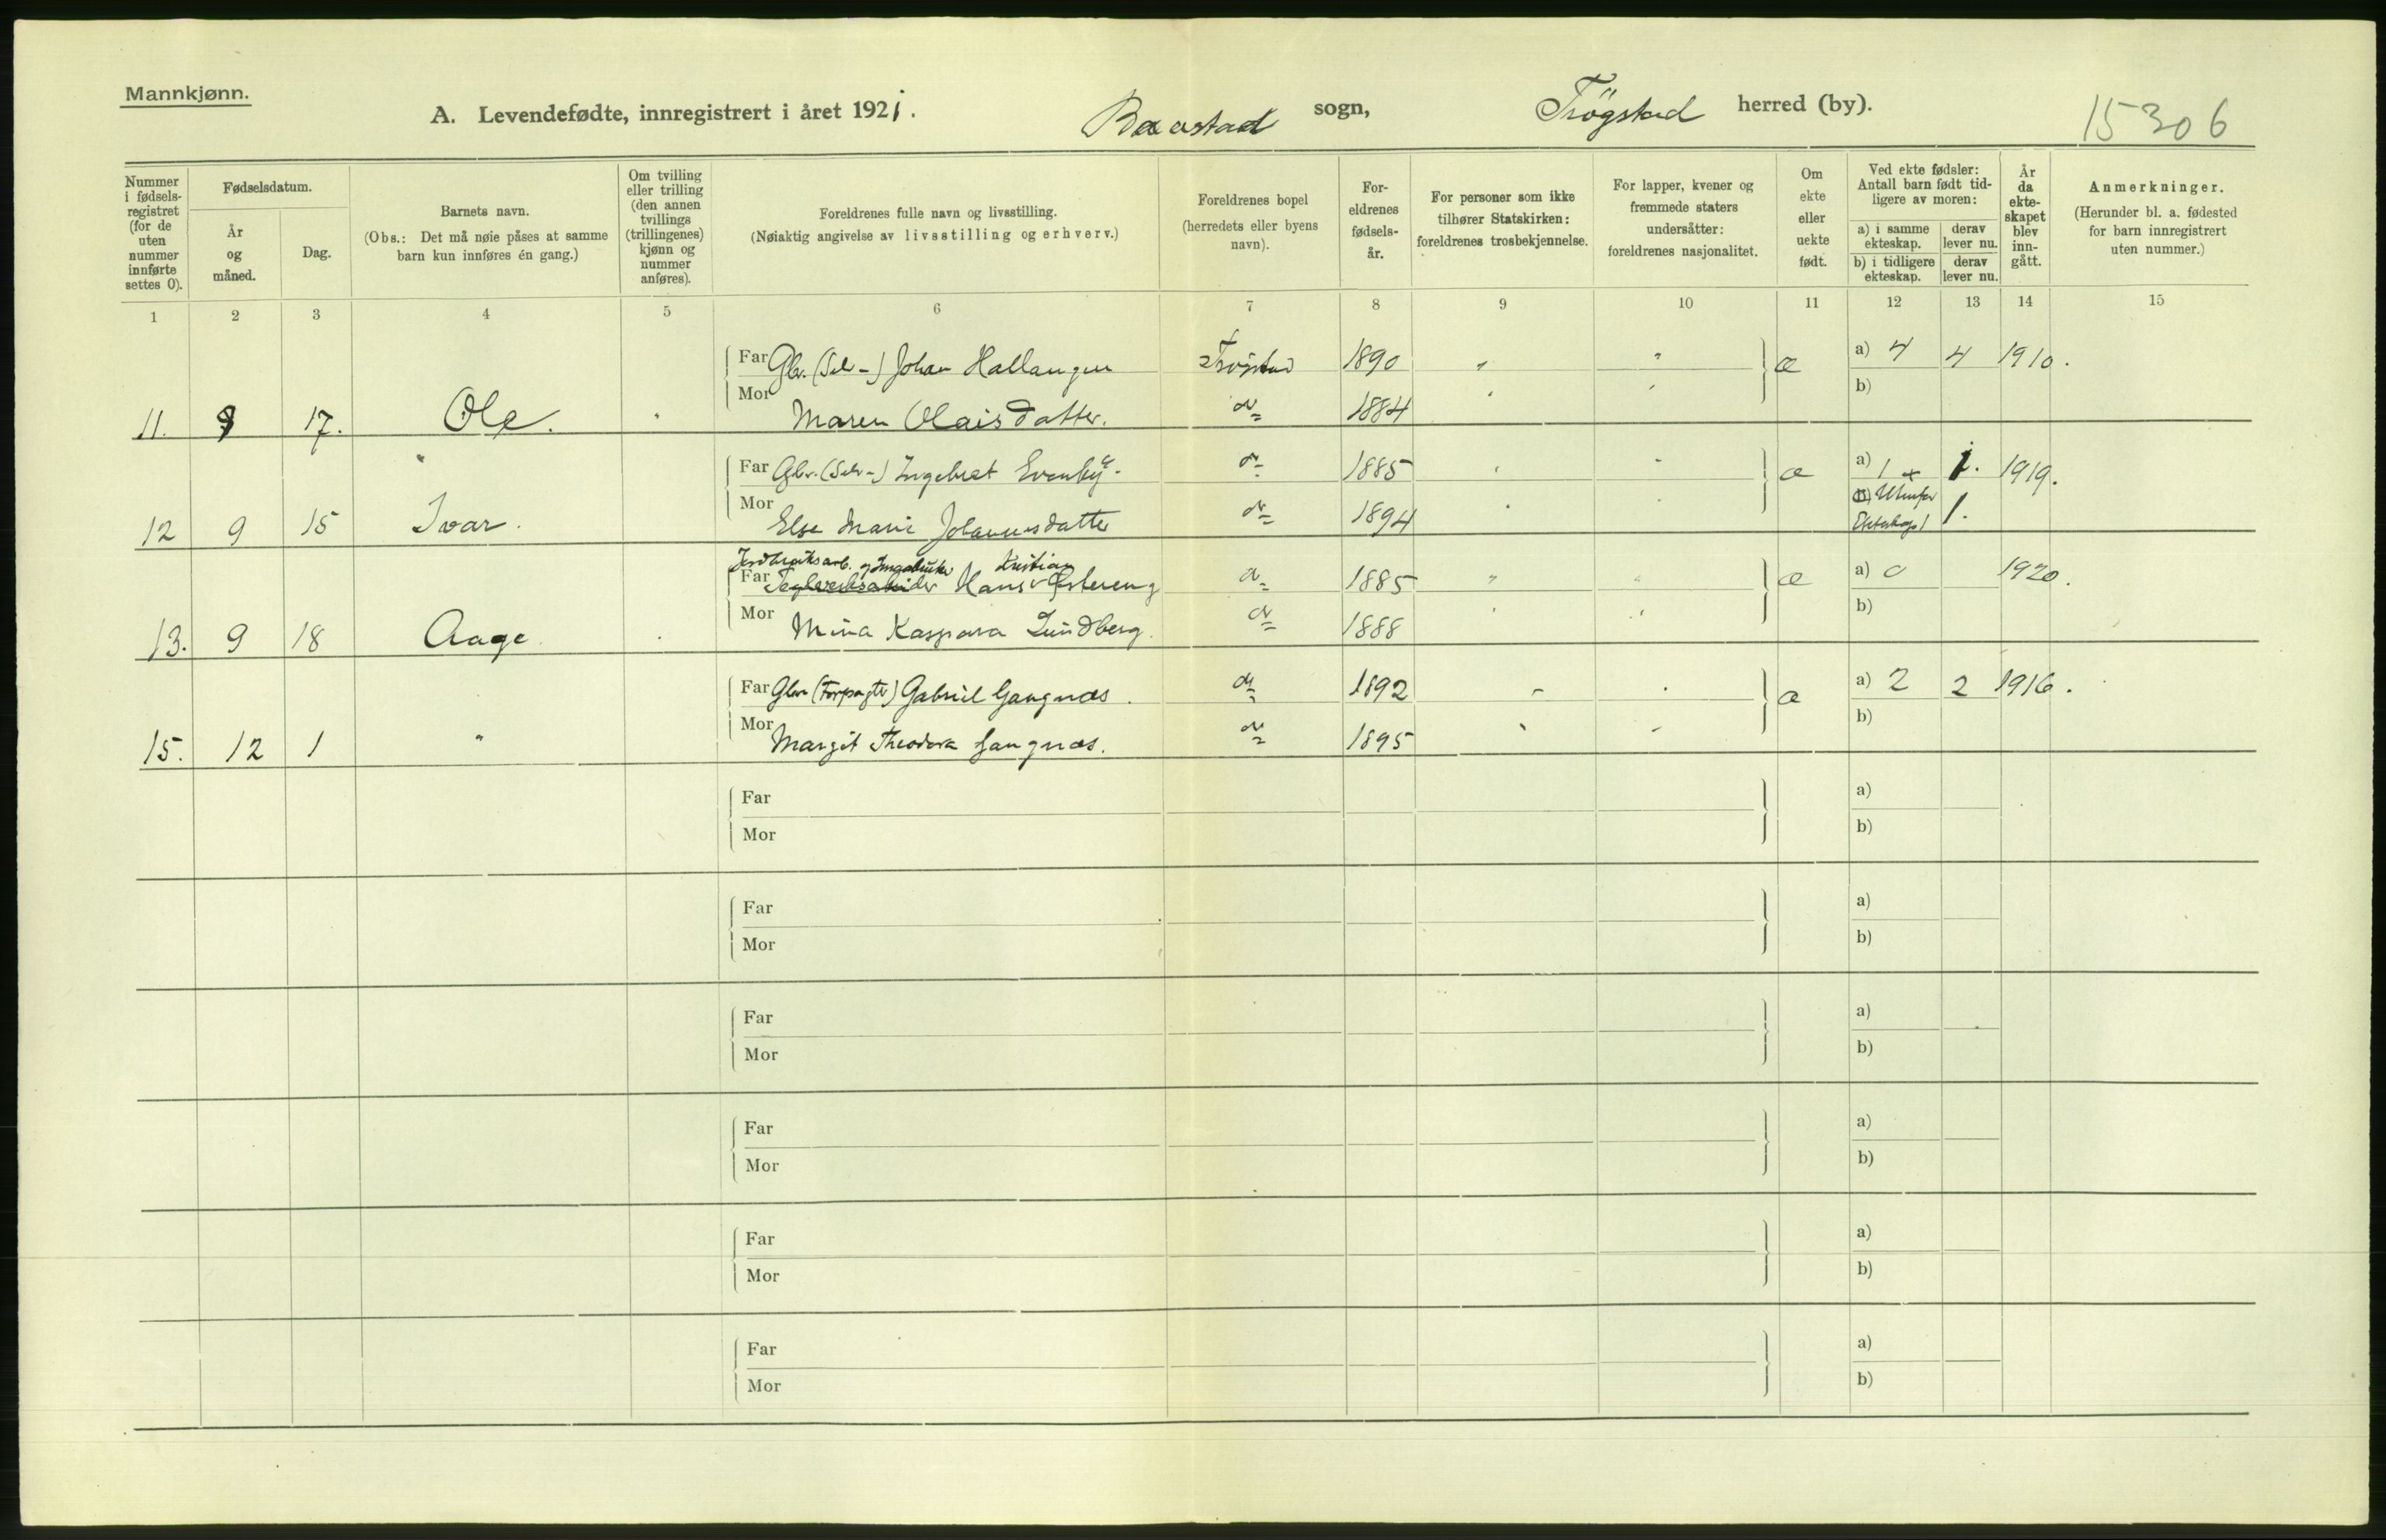 Mannkjønn.
A. Levendefødte, innregistrert i året 1921.
Baastad sogn,
Trögstad herred (by).
15306
Nummer i fødsels-registret (for de uten nummer innførte settes 0).
Fødselsdatum.
År og måned.
Dag.
Barnets navn.
(Obs.: Det må nøie påses at samme barn kun innføres én gang.)
Om tvilling eller trilling (den annen tvillings (trillingenes) kjønn og nummer anføres).
Foreldrenes fulle navn og livsstilling.
(Nøiaktig angivelse av livsstilling og erhverv.)
Foreldrenes bopel
(herredets eller byens navn).
For-eldrenes fødsels-år.
For personer som ikke tilhører Statskirken: foreldrenes trosbekjennelse.
For lapper, kvener og fremmede staters undersåtter: foreldrenes nasjonalitet.
Om ekte eller uekte født.
Ved ekte fødsler: Antall barn født tid-ligere av moren:
a) i samme ekteskap.
derav lever nu.
b) i tidligere ekteskap.
derav lever nu.
År da ekte-skapet blev inn-gått.
Anmerkninger.
(Herunder bl. a. fødested for barn innregistrert uten nummer.)
1 2 3 4 5 6 7 8 9 10 11 12 13 14 15
Far Gbr. (Selv-) Johan Hallangen Trögstad 1890 " " æ a) 4 4 1910.
Mor Maren Olaisdatter. do 1884 " " b)
11. 9 17. Ole.
Far Gbr. (Selv-) Ingebret Evenby do 1885 " " æ a) 1 + 1. 1919.
Mor Else Marie Johannesdatter do 1894 " " b) Utenfor Ekteskap 1 1.
12 9 15 Ivar.
Jordbruksarb. Kristian
Far Teglverksarbeider Hans Østereng do 1885 " " æ a) 0 1920.
Mor Mina Kaspara Lundberg. do 1888 " " b)
13. 9 18 Aage
Far Gbr. (Forpagter) Gabriel Gangnæs. do 1892 " " æ a) 2 2 1916.
Mor Margit Theodora Gangnæs. do 1895 " " b)
15. 12 1 "
Far a)
Mor b)
Far a)
Mor b)
Far a)
Mor b)
Far a)
Mor b)
Far a)
Mor b)
Far a)
Mor b)